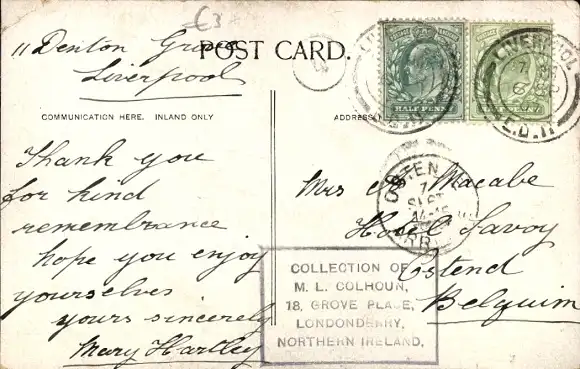 £3
11 Denton Grove
Liverpool
POST CARD.
COMMUNICATION HERE. INLAND ONLY
ADDRESS
Thank you
for kind
remembrance
hope you enjoy
yourselves
yours sincerely
Mary Hartley
HALF PENNY
LIVERPOOL
7
07
L.D.11
OSTEN
7
SEPT
ARR
Mrs Macabe
Hotel Savoy
Ostend
Belguim
COLLECTION OF
M. L. COLHOUN,
18, GROVE PLACE,
LONDONDERRY,
NORTHERN IRELAND,